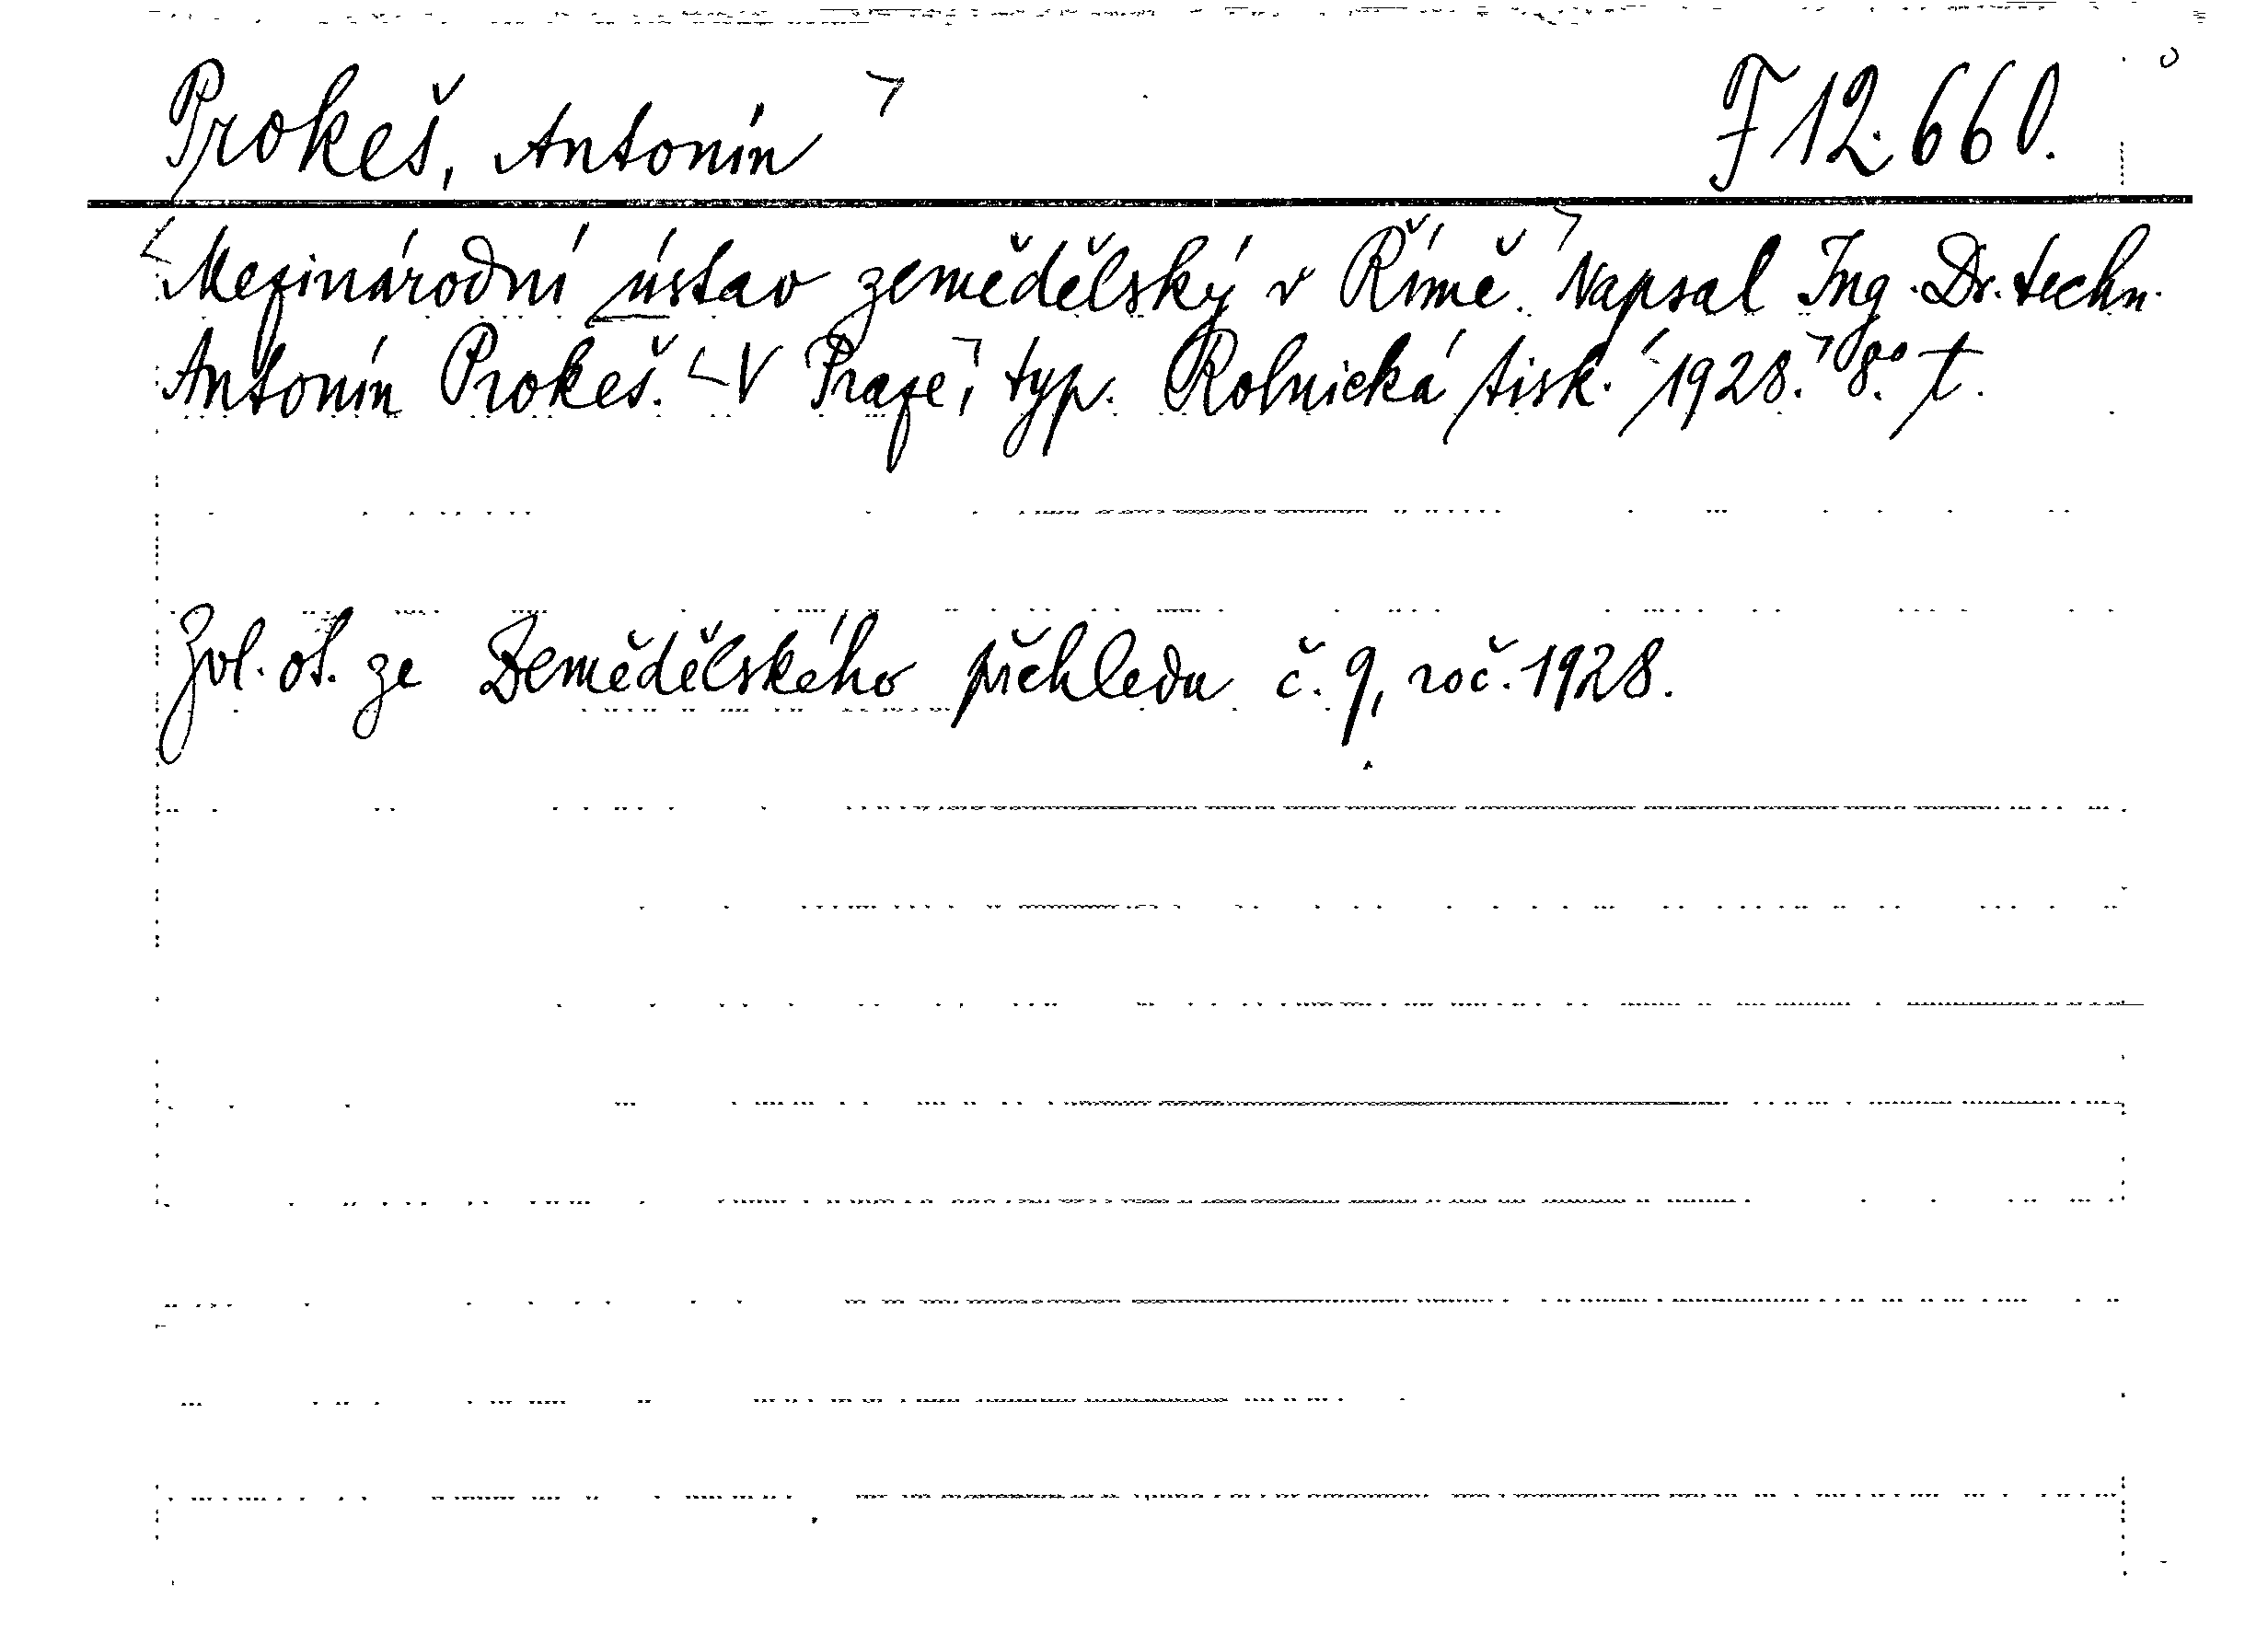 Prokeš, Antonín F 12.660.
Mezinárodní ústav zemědělský v Římě. Napsal Ing. Dr. techn.
Antonín Prokeš. V Praze, typ. Rolnická tisk. 1928. 8° t.
Zvl. ot. ze Zemědělského přehledu č. 9, roč. 1928.